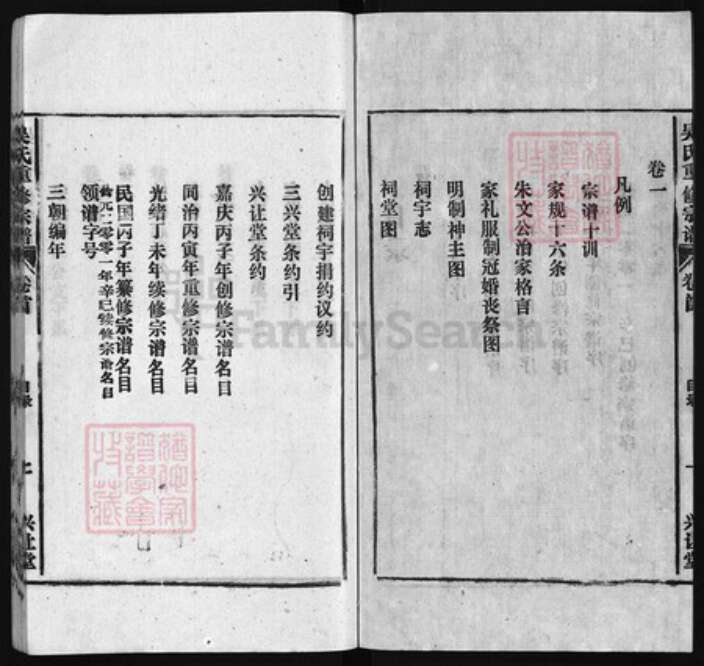 吴氏重修宗谱
卷首
目录
兴让堂
卷一
凡例
宗谱十训
家规十六条
朱文公治家格言
家礼服制冠婚丧祭图
明制神主图
祠宇志
祠堂图
创建祠宇捐约议约
三兴堂条约引
兴让堂条约
嘉庆丙子年创修宗谱名目
同治丙寅年重修宗谱名目
光绪丁未年续修宗谱名目
民国丙子年纂修宗谱名目
公元二零零一年辛巳续修宗谱名目
领谱字号
三朝编年
吴氏重修宗谱
卷首
目录
兴让堂
FamilySearch